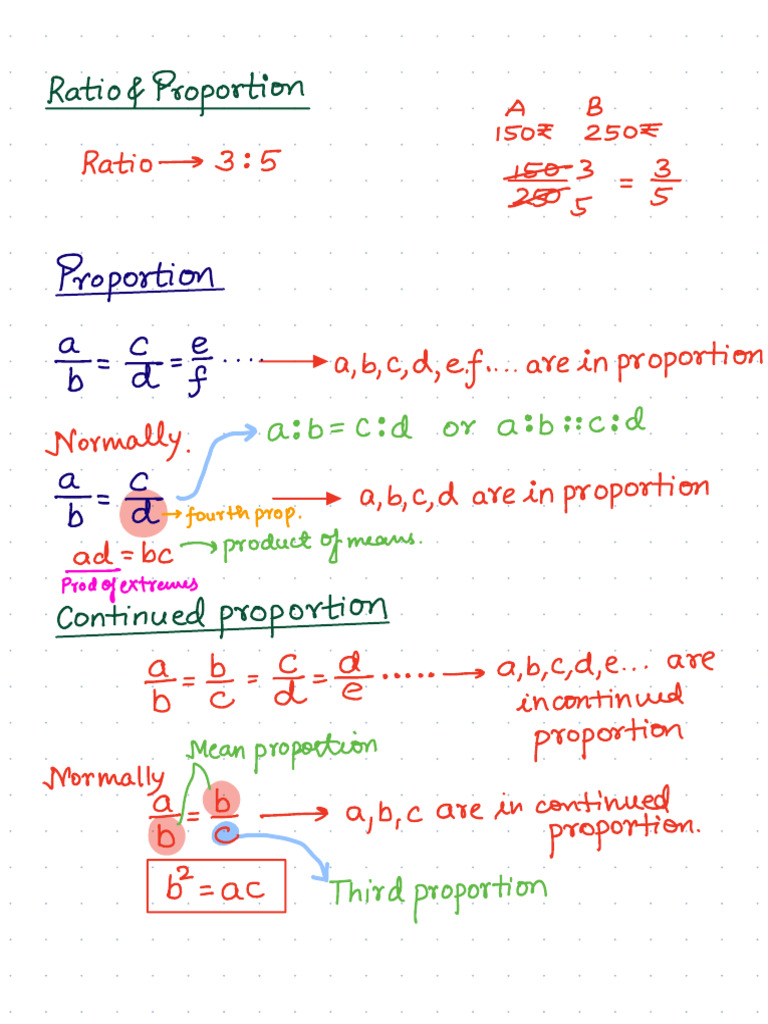 Ratio & Proportion
A B
150₹ 250₹
Ratio → 3:5
150/250 3/5 = 3/5
Proportion
a/b = c/d = e/f .... → a, b, c, d, e.f.... are in proportion
Normally.
a:b = c:d or a:b::c:d
a/b = c/d → a, b, c, d are in proportion
→ fourth prop.
ad = bc → product of means.
Prod of extremes
Continued proportion
a/b = b/c = c/d = d/e ..... → a, b, c, d, e... are
in continued
proportion
Mean proportion
Normally
a/b = b/c → a, b, c are in continued
proportion.
b² = ac
Third proportion